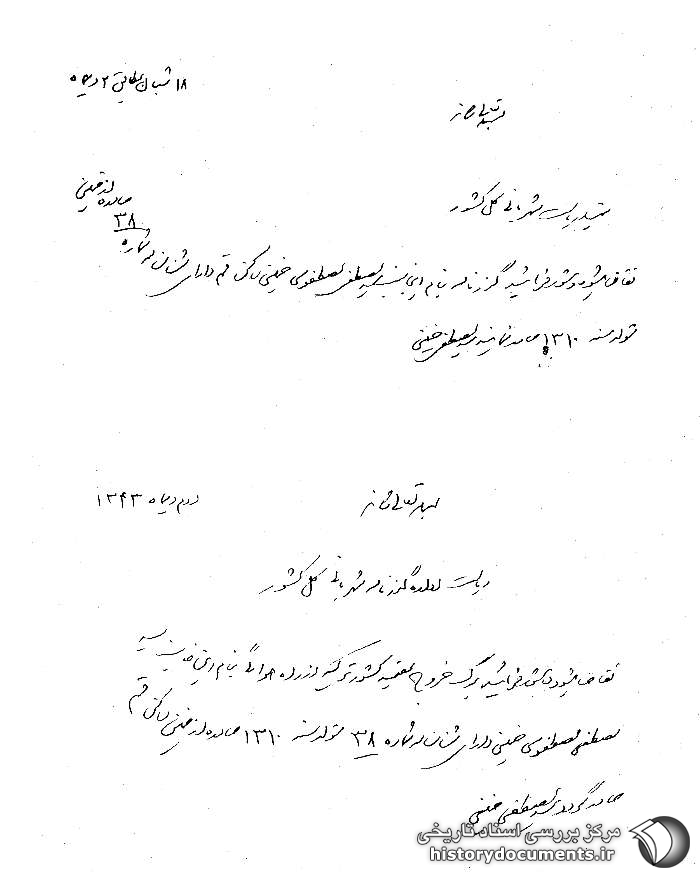 ۱۸ شعبان مطابق ۲ دیماه
بسمه تعالی شأنه
ریاست شهربانی کل کشور
تقاضا میشود دستور فرمائید گذرنامه بنام اینجانب سید مصطفی مصطفوی خمینی ساکن قم دارای شناسنامه شماره
۳۸
صادره از خمین
متولد سنه ۱۳۱۰ صادر نمایند سید مصطفی خمینی
بسمه تعالی شأنه
دوم دیماه ۱۳۴۳
ریاست اداره گذرنامه شهربانی کل کشور
تقاضا میشود فرمائید برگ خروج بمقصد کشور ترکیه از راه هوائی بنام اینجانب سید
مصطفی مصطفوی خمینی دارای شناسنامه شماره ۳۸ متولد سنه ۱۳۱۰ صادره از خمین ساکن قم
صادر گردد سید مصطفی خمینی
مرکز بررسی اسناد تاریخی
historydocuments.ir